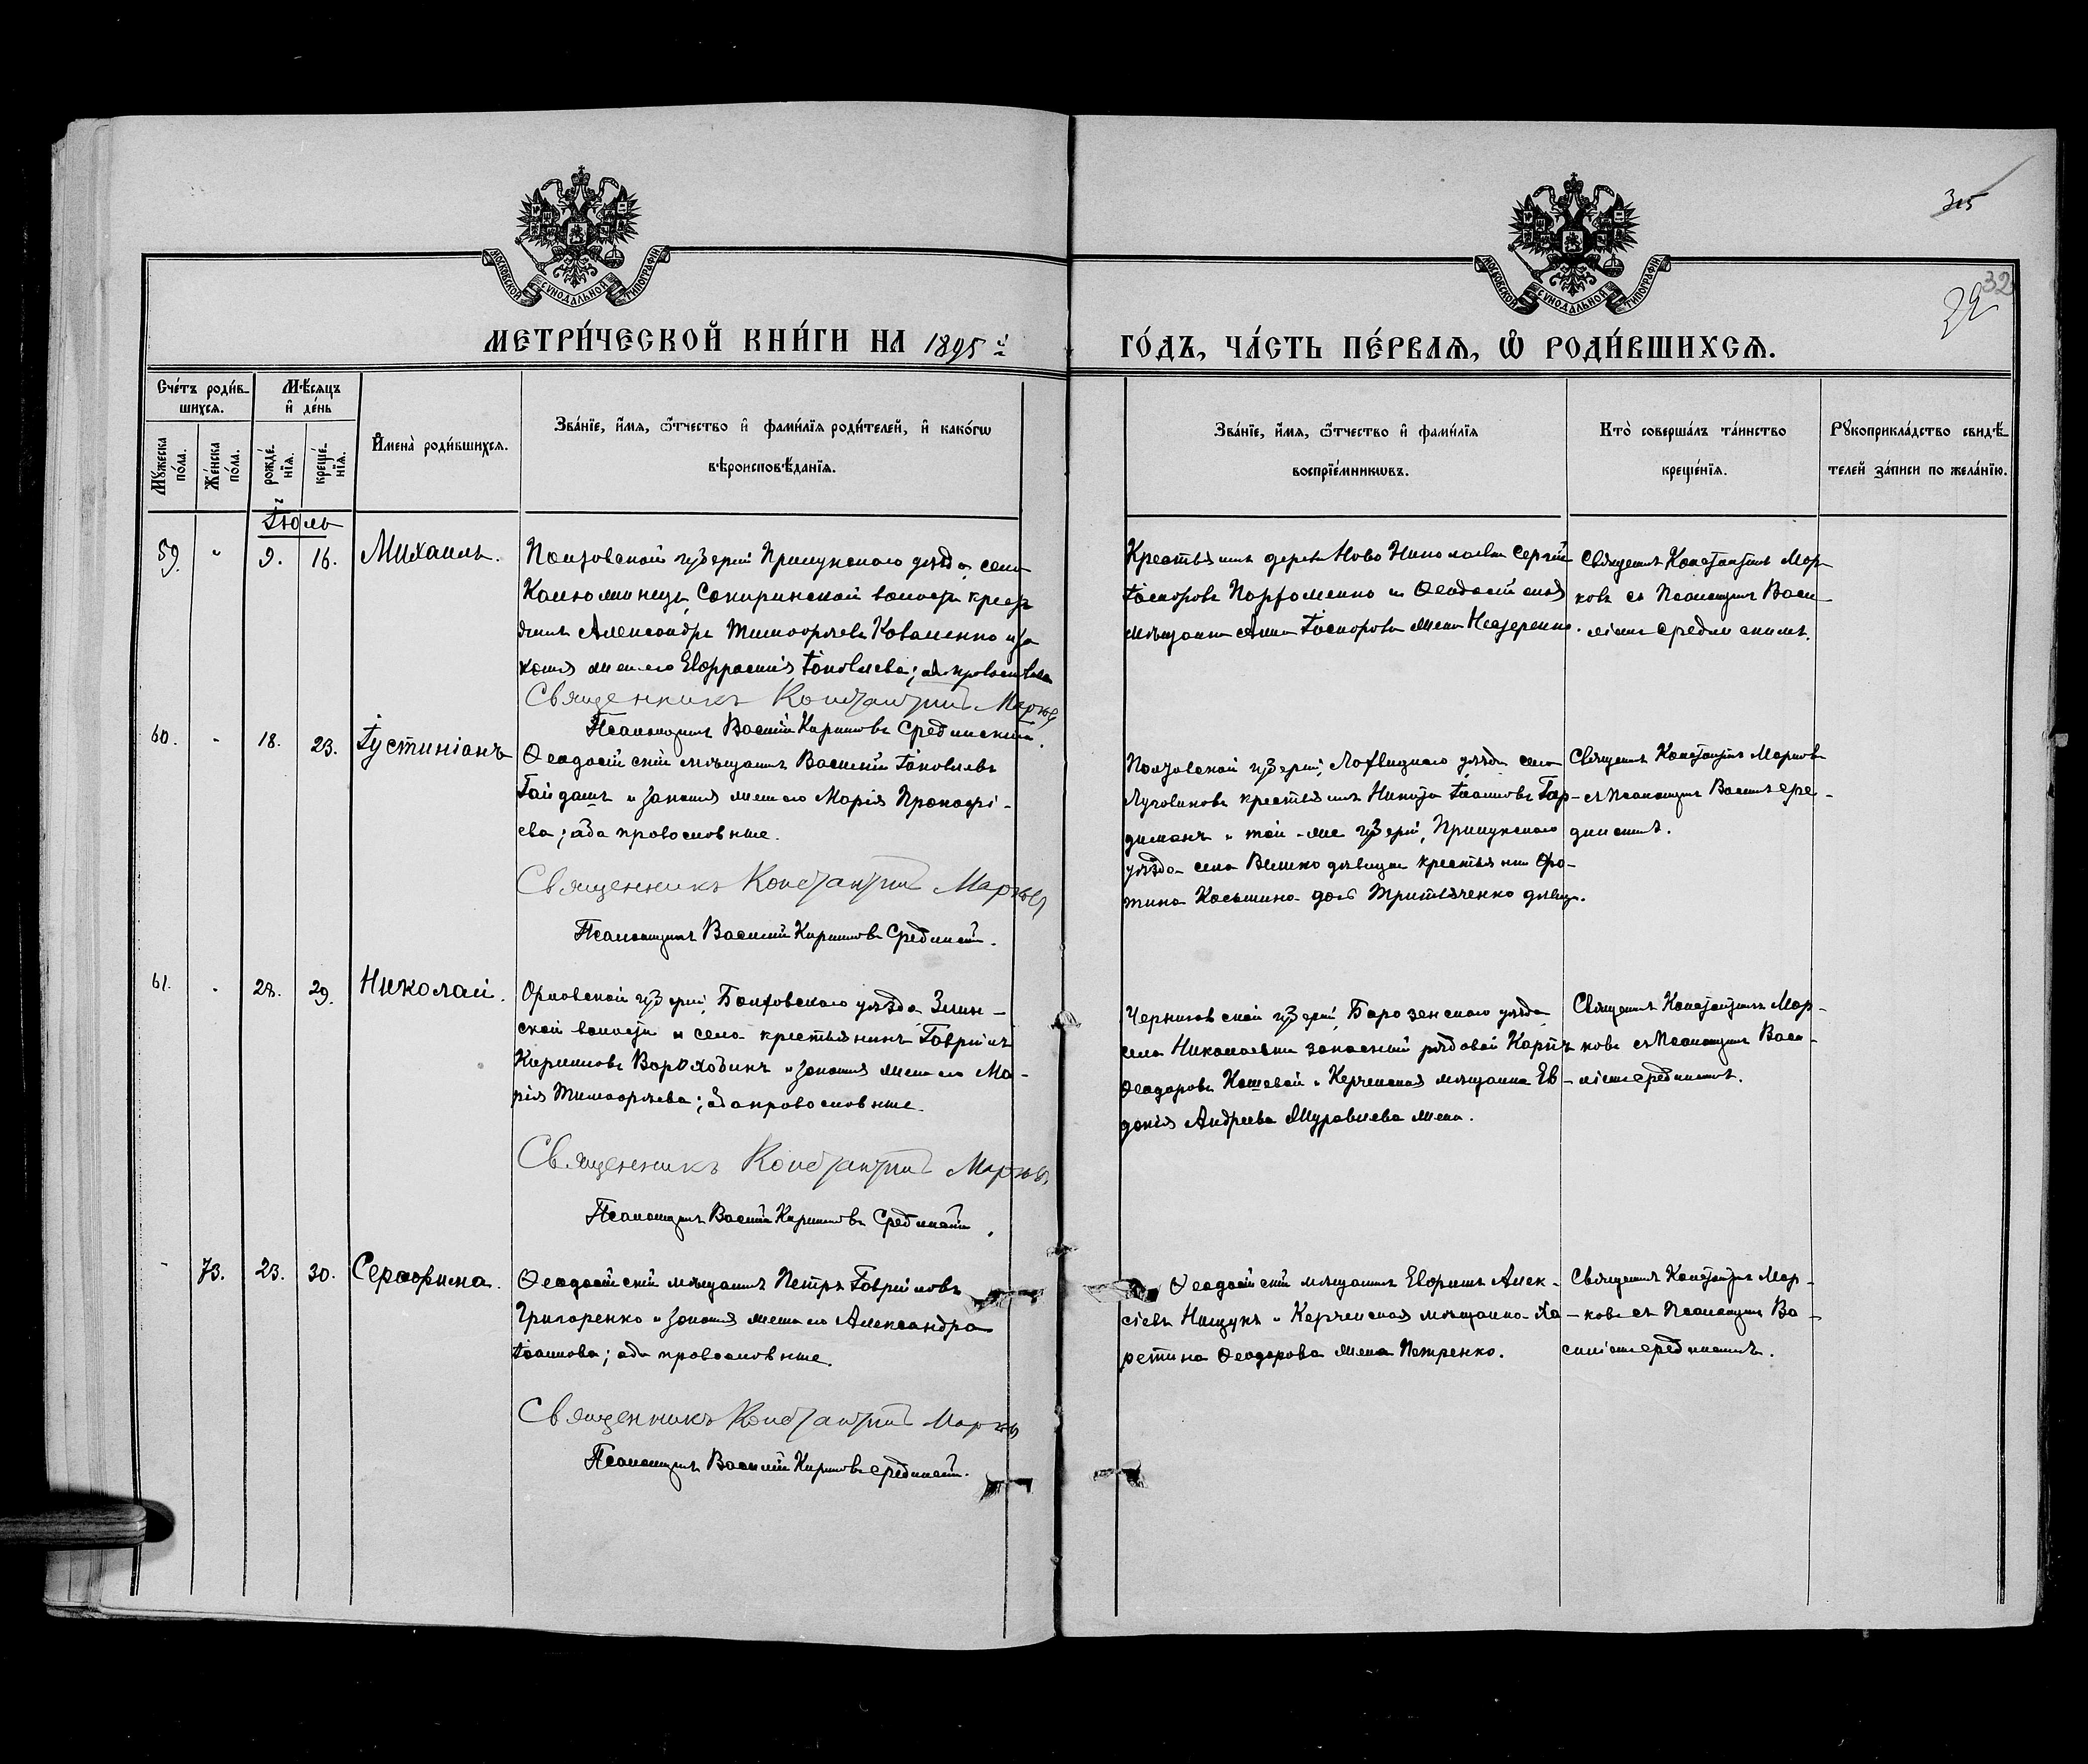 315
32
29
МОСКОВСКОЙ СѴНОДАЛЬНОЙ ТИПОГРАФІИ
МОСКОВСКОЙ СѴНОДАЛЬНОЙ ТИПОГРАФІИ
МЕТРИ́ЧЕСКОЙ КНИ́ГИ НА 1895 й
ГО́ДЪ, ЧА́СТЬ ПЕ́РВАЯ, Ѡ РОДИ́ВШИХСЯ.
Сче́тъ роди́в-
шихся.
Мꙋ́жеска по́ла.
Же́нска по́ла.
Мѣ́сяцъ
и҆ де́нь
рожде́-нїя.
креще́-нїя.
И҆мена̀ роди́вшихся.
Зва́нїе, и҆́мя, ѻ҆́тчество и҆ фами́лїя роди́телей, и҆ како́гѡ
вѣроисповѣ́данїя.
Зва́нїе, и҆́мя, ѻ҆́тчество и҆ фами́лїя
воспрїе́мникѡвъ.
Кто̀ соверша́лъ та́инство
креще́нїя.
Рꙋкоприкла́дство свидѣ́-
телей за́писи по жела́нїю.
Іюль
59. " 9. 16. Михаилъ.
Полтовской губерніи Прилукскаго уѣзда, села
Сокиринской волости крест
янинъ Александръ Тимоѳеевъ Коваленко и за
конная жена его Евфрасинія Іаковлева; оба православные
Священникъ Константинъ Марковъ
Псаломщикъ Василій Кириловъ Срединскій.
Крестьянинъ деревни Ново Николаевки Сергій
Парфоменко и Ѳеодосійская
мѣщанка Анна жена Назаренко.
Священникъ Константинъ Мар-
ковъ съ Псаломщик. Васи-
ліемъ Срединскимъ.
60. " 18. 23. Іустиніанъ
Ѳеодосійскій мѣщанинъ Василій Іаковлевъ
Гайдашъ и законная жена его Марія Прокофі-
ева; оба православные.
Священникъ Константинъ Марковъ
Псаломщикъ Василій Кириловъ Срединскій.
Полтовской губерніи, Лохвицкаго уѣзда села
Луговиковъ крестьянинъ Никита Іоанновъ Гар-
диманъ и той-же губерніи, Прилукскаго
уѣзда села Велико дѣвицы крестьянки Фо-
тина Косьмина дочь Тритяченко дѣвица.
Священникъ Константинъ Марковъ
съ Псаломщик. Василіемъ Сре-
динскимъ.
61. " 28. 29. Николай.
Орловской губерніи, Болховскаго уѣзда Злин-
ской волости и села крестьянинъ Гавріилъ
Кирилловъ Вороховинъ и законная жена его Ма-
рія Тимоѳеева; оба православные.
Священникъ Константинъ Марковъ
Псаломщикъ Василій Кириловъ Срединскій.
Черниговской губерніи, Борозенскаго уѣзда
села Николаевки запасный рядовой Карпъ
Ѳеодоровъ Кошевой и Керченская мѣщанка Ев-
докія Андреева Муравлева жена.
Священникъ Константинъ Мар-
ковъ съ Псаломщик. Васи-
ліемъ Срединскимъ.
- 73. 23. 30. Серафима.
Ѳеодосійскій мѣщанинъ Петръ Гавріиловъ
Григоренко и законная жена его Александра
Іоаннова; оба православные.
Священникъ Константинъ Марковъ
Псаломщикъ Василій Кириловъ Срединскій.
Ѳеодосійскій мѣщанинъ Евфимъ Алек-
сіевъ Нищукъ и Керченская мѣщанка Ха-
ретина Ѳеодорова жена Петренко.
Священникъ Константинъ Мар-
ковъ съ Псаломщик. Ва-
силіемъ Срединскимъ.